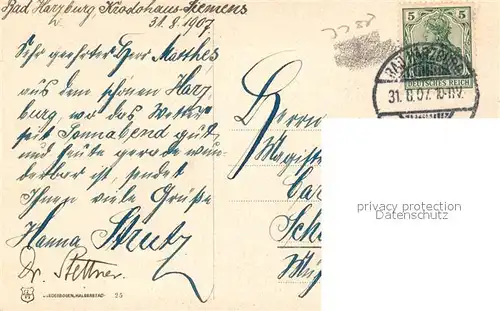 Bad Harzburg, Krodohaus Siemens
31.8.1907
Sehr geehrter Herr Matthes
aus dem schönen Harz
burg, wo das Wetter
seit Sonnabend gut
und heute gerade wun
derbar ist, sendet
Ihnen viele Grüße
Hanna Strutz
Dr. Stettner.
3738
5 5
DEUTSCHES REICH
BAD HARZBURG
31.8.07. 10-11V.
Herrn
Magist
Car
Sch
privacy protection
Datenschutz
25